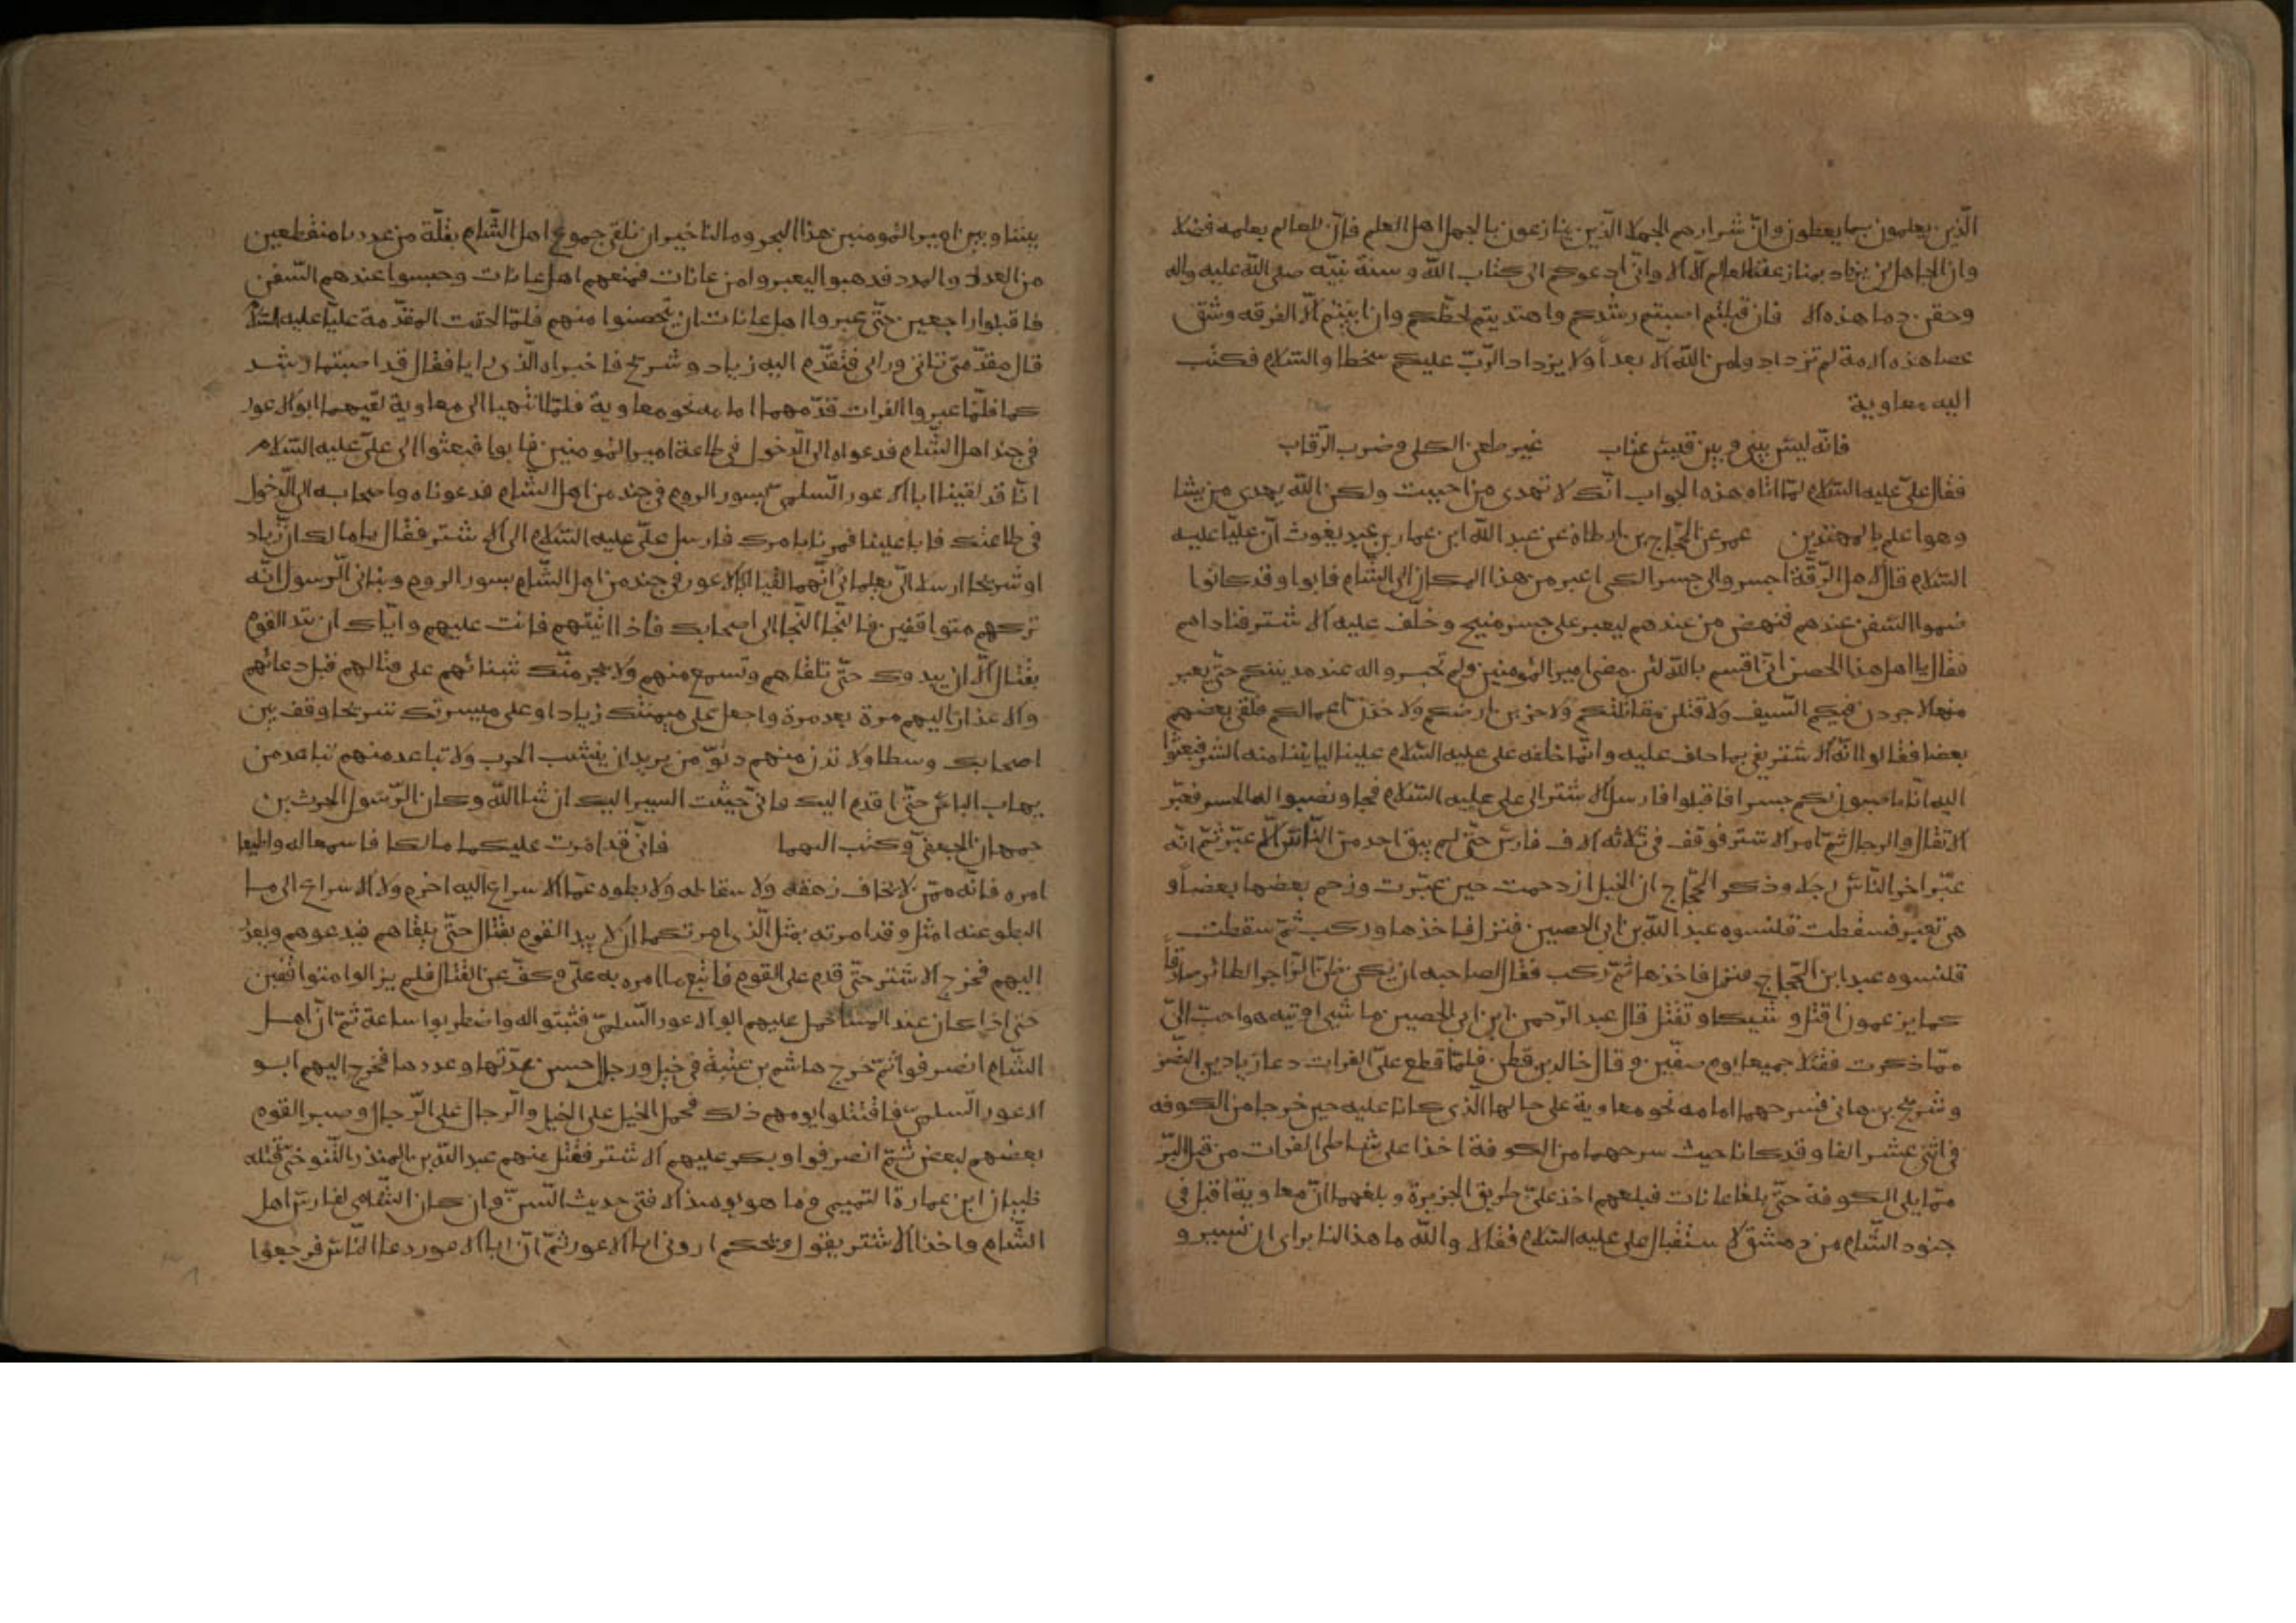 الّذين يعملون بما يعلمون وانّ شرارهم الجهلا الّذين ينازعون بالجهل اهل العلم فانّ للعالم بعلمه فضلا
وان الجاهل لن يزداد بمنازعته العالم الّا جهلا الا وانّى ادعوكم الى كتاب الله وسنة نبيّه صلى الله عليه واله
وحقن دما هذه الامة فان قبلتم اصبتم رشدكم واهتديتم لحظّكم وان ابيتم الّا الفرقه وشق
عصا هذه الامة لم تزدادوا من الله الّا بعداً ولا يزداد الرّبّ عليكم سخطا والسّلام فكتب
اليه معاوية
فانّه ليس بينى وبين قيس عتاب غير طعن الكلى وضرب الرّقاب
فقال علىّ عليه السّلام لمّا اتاه هذه الجواب انّك لا تهدى من احببت ولكن الله يهدى من يشا
وهو اعلم بالمهتدين عمر عن الحجّاج بن ارطاه عن عبد الله ابن عمار بن عبد يغوث انّ عليّا عليه
السّلام قال لاهل الرّقّة اجسروا لى جسرا لكى اعبر من هذا المكان الى الشّام فابوا وقد كانوا
ضموا السّفن عندهم فنهض من عندهم ليعبر على جسر منبج وخلّف عليه الاشتر فناداهم
فقال يا اهل هذا الحصن انّى اقسم بالله لئن مضى امير المؤمنين ولم تجسروا له عند مدينتكم حتّى يعبر
منها لاجردن فيكم السّيف ولاقتلن مقاتلتكم ولاخربن ارضكم ولاخذن اموالكم فلقى بعضهم
بعضا فقالوا انّه الاشتر يفى بما حلف عليه وانّما خلفه على عليه السّلام علينا لياتينا منه الشر فبعثوا
اليه انّا ناصبون لكم جسرا فاقبلوا فارسل الاشتر الى على عليه السّلام فجا ونصبوا له الجسر فعبّر
الاثقال والرجال ثمّ امر الاشتر فوقف فى ثلاثه الاف فارس حتّى لم يبق احد من النّاس الّا عبّر ثمّ انّه
عبّر اخر النّاس رجلا وذكر الحجّاج ان الخيل ازدحمت حين عبّرت وزحم بعضها بعضاً و
هى تعبر فسقطت قلنسوه عبد الله بن ابى الحصين فنزل فاخذها وركب ثمّ سقطت
قلنسوه عبد ابن الحجّاج فنزل فاخذها ثمّ ركب فقال لصاحبه ان يكن ظنّ الزّاجر الطائر صادقاً
كما يزعمون اقتل وشيكا وتقتل قال عبد الرّحمن ابن ابى الحصين ما شى اوتيه هو احبّ الىّ
ممّا ذكرت فقتلا جميعا يوم صفّين وقال خالد بن قطن فلمّا قطع علىّ الفرات دعا زياد بن النّضر
وشريح بن هانى فسرحهما امامه نحو معاوية على حالهما الّذى كانا عليه حين خرجا من الكوفه
فى اثنى عشر الفا وقد كانا حيث سرحهما من الكوفة اخذا على شاطى الفرات من قبل البّر
ممّا يلى الكوفة حتّى بلغا عانات فبلغهم اخذ علىّ طريق الجزيرة وبلغهما انّ معاوية اقبل فى
جنود الشّام من دمشق لاستقبال على عليه السّلام فقالا والله ما هذا لنا براى ان نسير و
بيننا وبين امير المؤمنين هذا البحر وما لنا خير ان نلقى جموع اهل الشّام بقلّة من عددنا منقطعين
من العدد والمدد فذهبوا ليعبروا من عانات فمنعهم اهل عانات وحبسوا عندهم السّفن
فاقبلوا راجعين حتّى عبروا اهل عانات ان يتحصنوا منهم فلمّا لحقت المقدّمة عليّا عليه السّلام
قال مقدّمتى تاتى ورائى فتقدّم اليه زياد وشريح فاخبراه الّذى رايا فقال قد اصبتما رشد
كما فلمّا عبروا الفرات قدّمهما امامه نحو معاوية فلمّا انتهيا الى معاوية لقيهما ابو الاعور
فى جند اهل الشّام فدعواه الى الدّخول فى طاعة امير المؤمنين فابوا فبعثوا الى علىّ عليه السّلام
انّا قد لقينا ابا الاعور السّلمى بسور الروم فى جند من اهل الشّام فدعوناه واصحابه الى الدّخول
فى طاعتك فابا علينا فمرنا بامرك فارسل علىّ عليه السّلام الى الاشتر فقال يا مالك ان زياد
او شريحا ارسلا الىّ يعلمانى انّهما لقيا ابا الاعور فى جند من اهل الشّام بسور الروم ونبانى الرّسول انّه
تركهم متواقفين فالنّجا النّجا الى اصحابك فاذا اتيتهم فانت عليهم وايّاك ان تبد القوم
بقتال الّا ان يبدوك حتّى تلقاهم وتسمع منهم ولا يجرمنّك شنائهم على قتالهم قبل دعائهم
والاعذار اليهم مرة بعد مرة واجعل على ميمنتك زيادا وعلى ميسرتك شريحا وقف بين
اصحابك وسطا ولا تدن منهم دنوّ من يريد ان ينشب الحرب ولا تباعد منهم تباعد من
يهاب الباس حتّى اقدم اليك فانى حثيث السير اليك ان شا الله وكان الرّسول الحرث بن
جمهان الجعفىّ وكتب اليهما فانّى قد امّرت عليكما مالكا فاسمعا له واطيعا
امره فانّه ممّن لا يخاف زهقه ولا سقاطه ولا بطوه عمّا الاسراع اليه احزم ولا الاسراع الى ما
البطو عنه امثل وقد امرته بمثل الّذى امرتكما ان لا يبد القوم بقتال حتّى يلقاهم فيدعوهم ويعذر
اليهم فخرج الاشتر حتّى قدم على القوم فاتبع ما امره به علىّ وكفّ عن القتال فلم يزالوا متواقفين
حتى اذا كان عند المسا حمل عليهم ابو الاعور السّلمىّ فثبتوا له واضطربوا ساعة ثمّ انّ اهل
الشّام انصرفوا ثمّ خرج هاشم بن عتبة فى خيل ورجال حسن عدّتها وعددها فخرج اليهم ابو
الاعور السّلمى فاقتتلوا يومهم ذلك فحمل الخيل على الخيل والرّجال على الرّجال وصبر القوم
بعضهم لبعض ثمّ انصرفوا وبكر عليهم الاشتر فقتل منهم عبد الله بن المنذر التّنوخى قتله
ظبيان ابن عمارة التميمى وما هو يومئذ الا فتى حديث السّنّ وان كان الشّامى لفارس اهل
الشّام واخذ الاشتر يقول ويحكم ارونى ابا الاعور ثمّ انّ ابا الاعور دعا النّاس فرجعوا